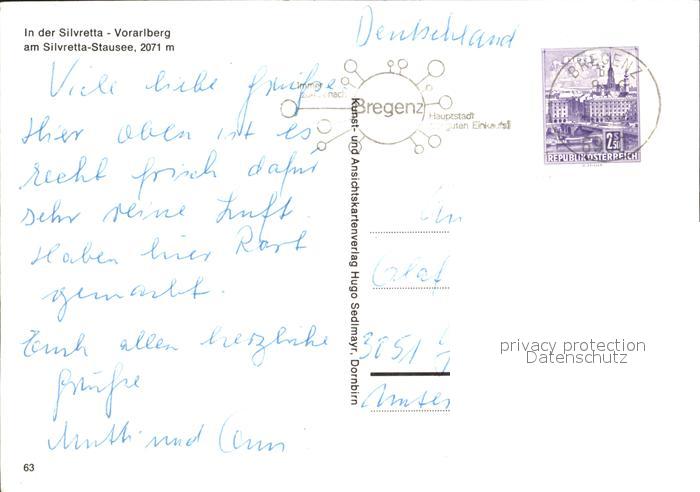 In der Silvretta - Vorarlberg
am Silvretta-Stausee, 2071 m
Deutschland
Viele liebe Grüße.
Hier oben ist es
recht frisch dafür
sehr reine Luft.
Haben hier Rast
gemacht.
Euch allen herzliche
Grüße
Mutti und
63
Kunst- und Ansichtskartenverlag Hugo Sedlmayr, Dornbirn
Immer
nach
Bregenz
Hauptstadt
guten Einkaufs
BREGENZ
2.50
REPUBLIK ÖSTERREICH
An
3851
Unter
privacy protection
Datenschutz